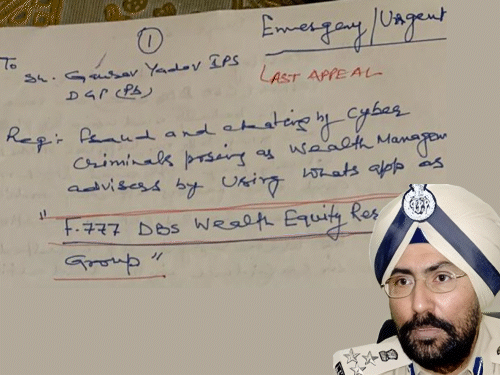 ①
Emergency/Urgent
To
Sh. Gaurav Yadav IPS
DGP (Pb)
LAST APPEAL
Reg:- fraud and cheating by Cyber
Criminals posing as Wealth Manager
advisers by using Whats app as
"F.777 DBS Wealth Equity Res
Group"